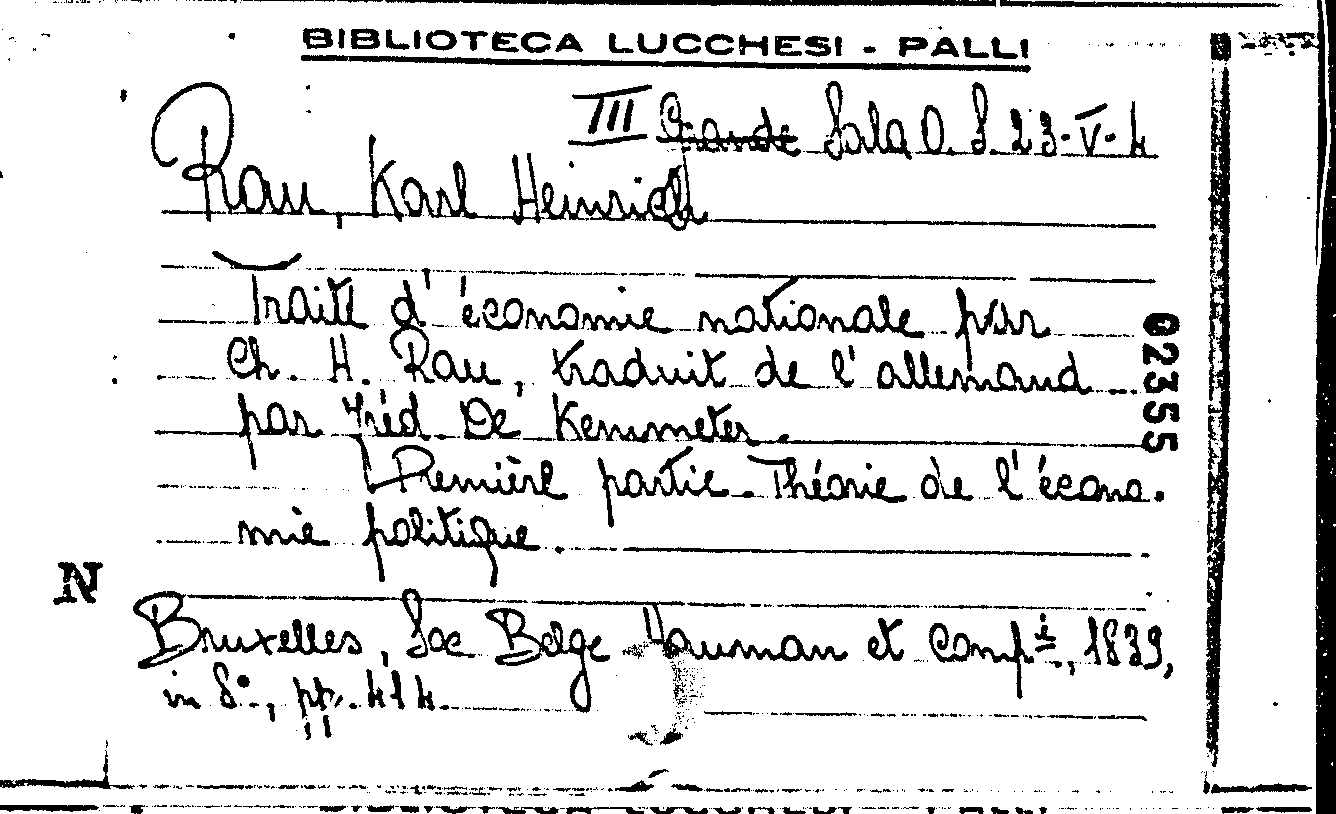 BIBLIOTECA LUCCHESI - PALLI
III Grande Sala O. S. 23-V-4
Rau, Karl Heinrich
Traité d'économie nationale par
Ch. H. Rau, traduit de l'allemand
par Fréd. De Kemmeter.
Première partie. Théorie de l'écono-
mie politique.
N
Bruxelles, Soc Belge Hauman et Comp.ie, 1839,
in 8°, pp. 414.
02355